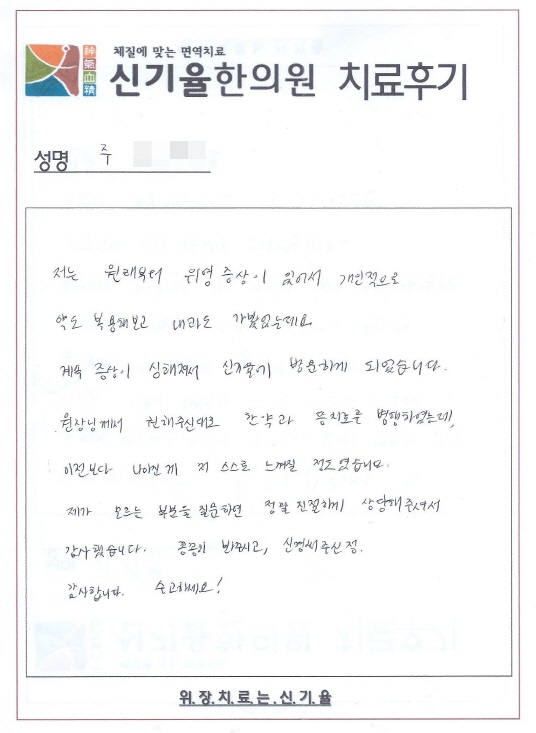 神氣
血精
체질에 맞는 면역치료
신기율한의원 치료후기
성명 주
저는 원래부터 위염 증상이 있어서 개인적으로
약도 복용해보고 내과도 가봤었는데요
계속 증상이 심해져서 신기율에 방문하게 되었습니다.
원장님께서 권해주신대로 한약과 뜸치료를 병행하였는데,
이전보다 나아진게 저 스스로 느껴질 정도였습니다.
제가 모르는 부분을 질문하면 정말 친절하게 상담해주셔서
감사했습니다. 꼼꼼히 봐주시고, 신경써주신 점.
감사합니다. 수고하세요!
위.장.치.료.는.신.기.율